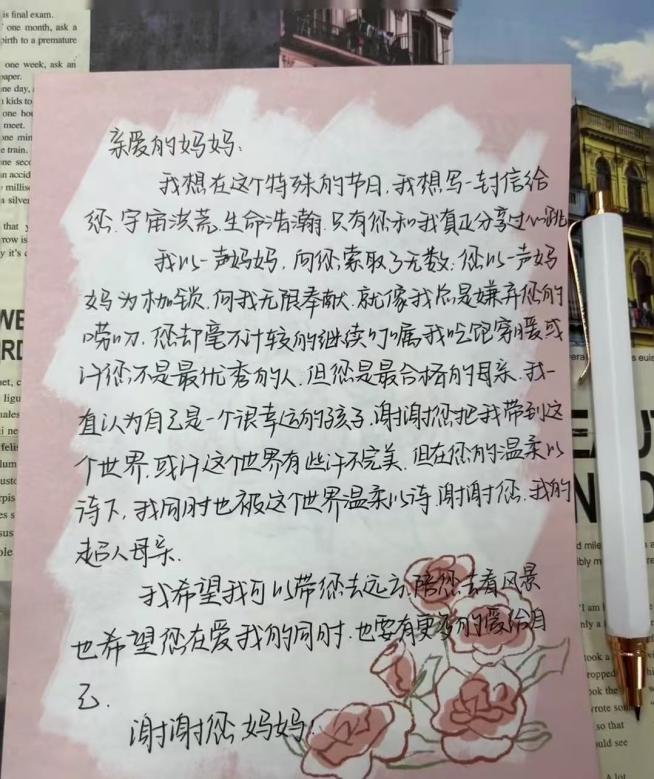 is final exam.
one month, ask a
birth to a premature
one week, ask an
亲爱的妈妈:
我想在这个特殊的节日,我想写一封信给
您.宇宙洪荒.生命浩瀚.只有您和我真正分享过心跳
我以一声妈妈,向您索取了无数;您以一声妈
妈为枷锁.向我无限奉献.就像我总是嫌弃您的
唠叨.您却毫不计较的继续叮嘱我吃饱穿暖或
许您不是最优秀的人.但您是最合格的母亲.我一
直认为自己是一个很幸运的孩子.谢谢您把我带到这
个世界.或许这个世界有些许不完美.但在您的温柔以
待下.我同时也被这个世界温柔以待.谢谢您.我的
超人母亲.
我希望我可以带您去远方.陪您去看风景
也希望您在爱我的同时.也要有更多的爱给自
己.
谢谢您妈妈!